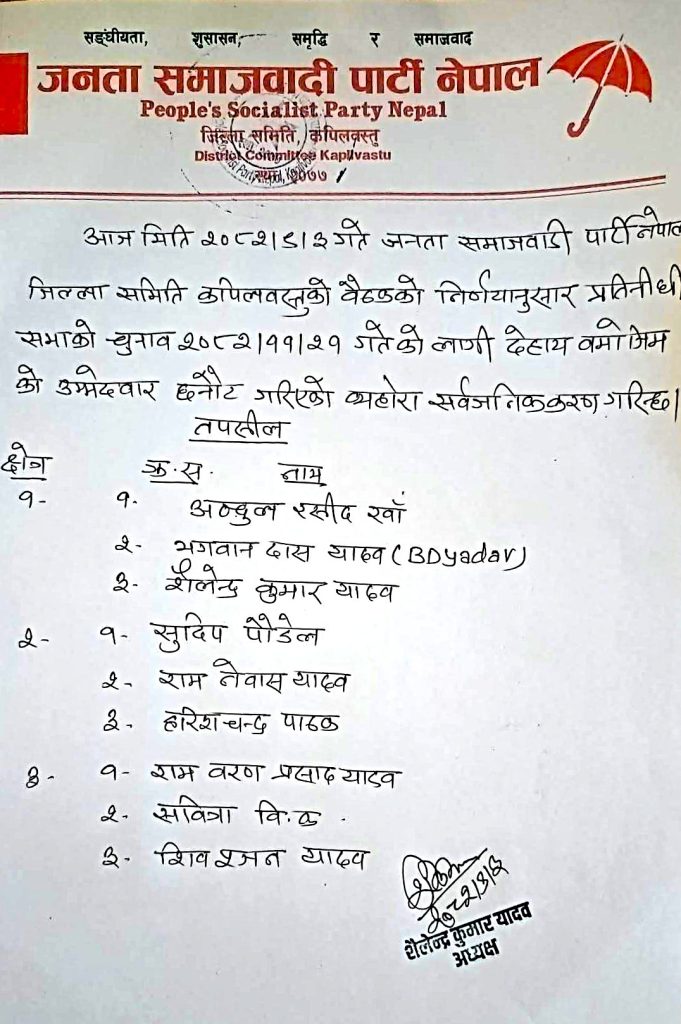 सङ्घीयता, शुसासन, समृद्धि र समाजवाद
जनता समाजवादी पार्टी नेपाल
People's Socialist Party Nepal
जिल्ला समिति, कपिलवस्तु
District Committee Kapilvastu
२०७७
आज मिति २०८२।९।३ गते जनता समाजवादी पार्टी नेपाल
जिल्ला समिति कपिलवस्तुको बैठकको निर्णयानुसार प्रतिनीधी
सभाको चुनाव २०८२।११।२१ गतेको लागी देहाय वमोजिम
को उम्मेदवार छनौट गरिएको व्यहोरा सर्वजनिककरण गरिन्छ।
तपसील
क्षेत्र क्र.स. नाम
१- १. अब्दुल रसीद खाँ
२- भगवान दास यादव (BDyadav)
३- शैलेन्द्र कुमार यादव
२- १- सुदिप पौडेल
२- राम नेवास यादव
३- हरिश चन्द्र पाठक
३- १- राम वरण प्रसाद यादव
२- सवित्रा वि.क.
३- शिव यादव
शैलेन्द्र कुमार यादव
अध्यक्ष